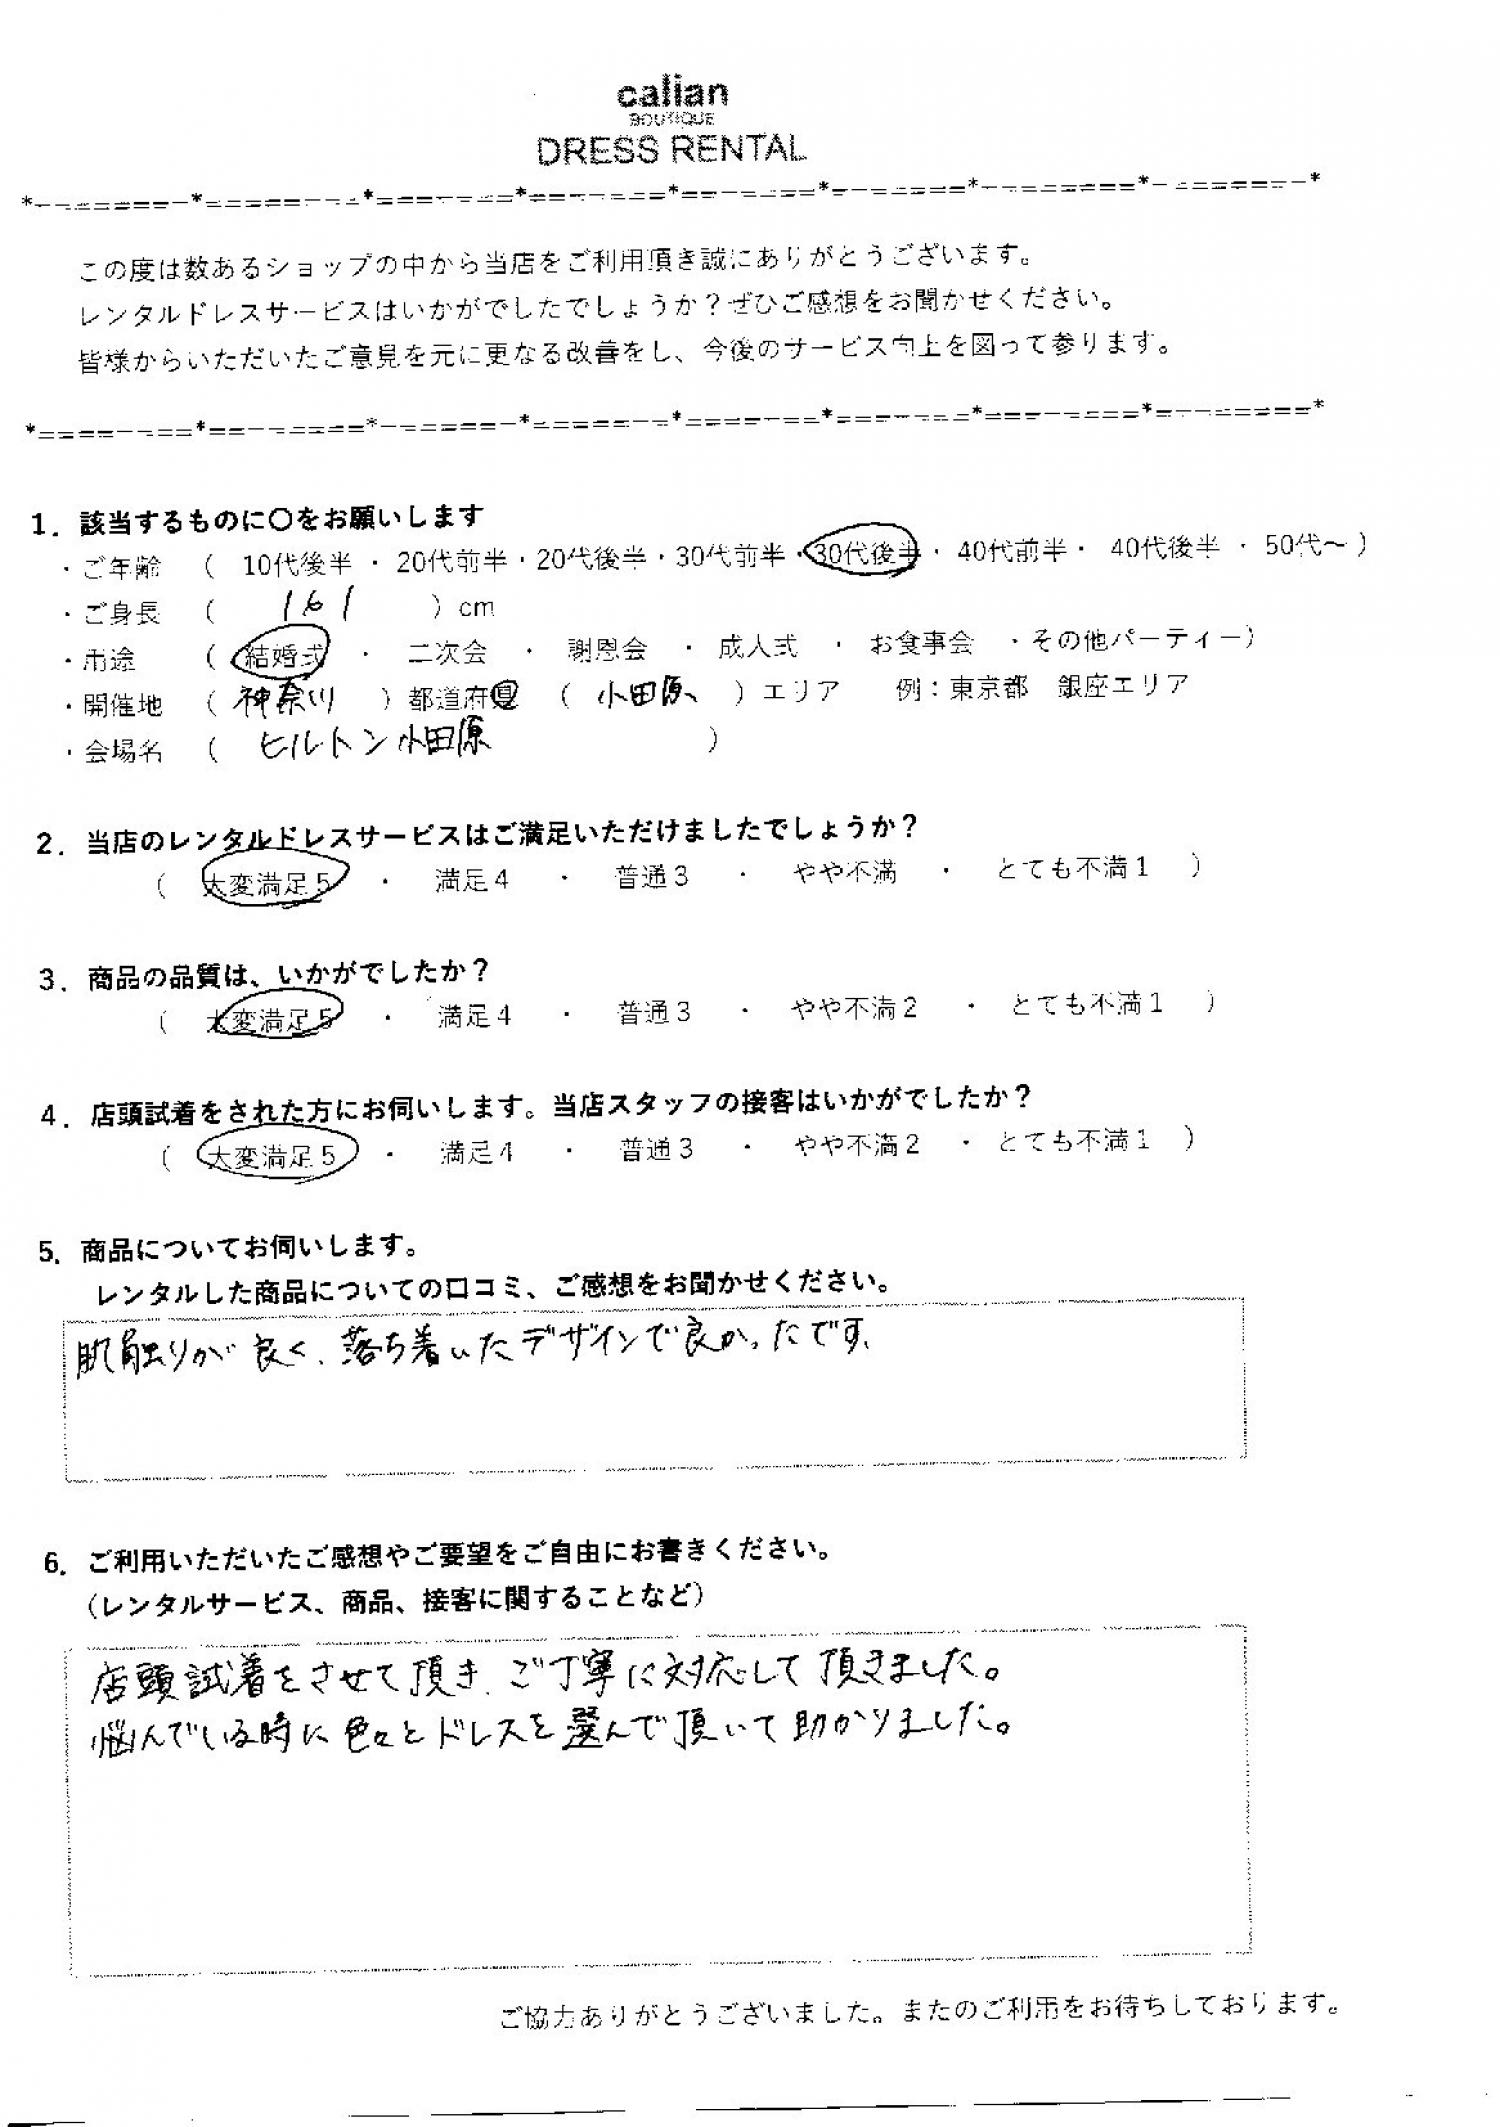 calian
BOUTIQUE
DRESS RENTAL
*--=======-*=======---*====---===*===----====*===----===*=--======*--=======*--=======-*
この度は数あるショップの中から当店をご利用頂き誠にありがとうございます。
レンタルドレスサービスはいかがでしたでしょうか？ぜひご感想をお聞かせください。
皆様からいただいたご意見を元に更なる改善をし、今後のサービス向上を図って参ります。
*====---===*===--=====*--======-*======--=*====---===*===----===*===---====*=---======*
1．該当するものに〇をお願いします
・ご年齢 （ 10代後半 ・ 20代前半・20代後半・30代前半・30代後半・ 40代前半・ 40代後半 ・ 50代～ ）
・ご身長 （ 161 ）cm
・用途 （ 結婚式 ・ 二次会 ・ 謝恩会 ・ 成人式 ・ お食事会 ・その他パーティー）
・開催地 （ 神奈川 ）都道府県 （ 小田原 ）エリア 例：東京都 銀座エリア
・会場名 （ ヒルトン小田原 ）
2．当店のレンタルドレスサービスはご満足いただけましたでしょうか？
（ 大変満足５ ・ 満足４ ・ 普通３ ・ やや不満 ・ とても不満１ ）
3．商品の品質は、いかがでしたか？
（ 大変満足５ ・ 満足４ ・ 普通３ ・ やや不満２ ・ とても不満１ ）
4．店頭試着をされた方にお伺いします。当店スタッフの接客はいかがでしたか？
（ 大変満足５ ・ 満足４ ・ 普通３ ・ やや不満２ ・ とても不満１ ）
5．商品についてお伺いします。
レンタルした商品についての口コミ、ご感想をお聞かせください。
肌触りが良く、落ち着いたデザインで良かったです。
6．ご利用いただいたご感想やご要望をご自由にお書きください。
（レンタルサービス、商品、接客に関することなど）
店頭試着をさせて頂き、ご丁寧に対応して頂きました。
悩んでいる時に色々とドレスを選んで頂いて助かりました。
ご協力ありがとうございました。またのご利用をお待ちしております。